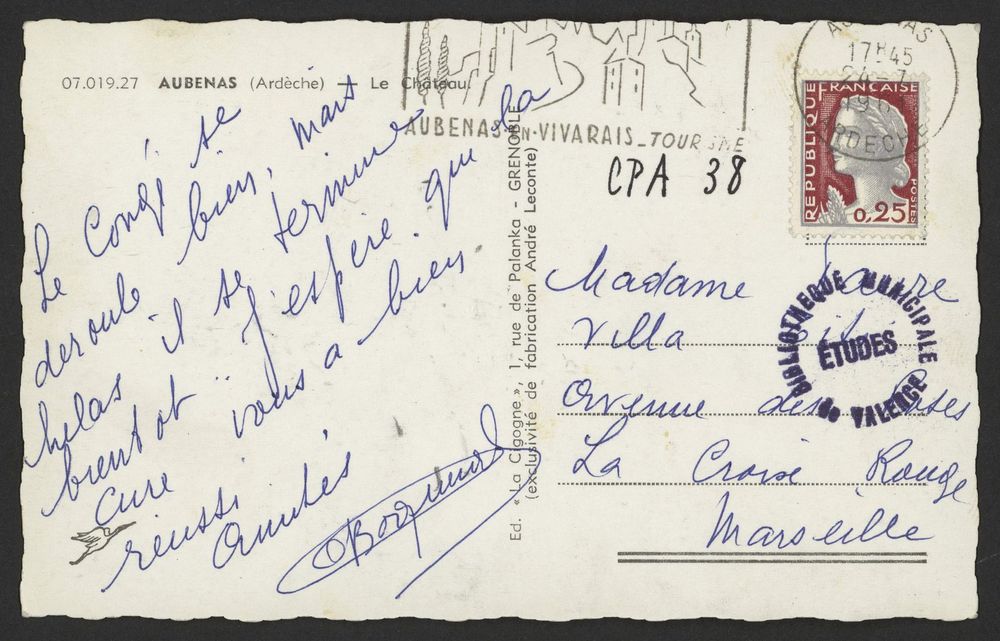 07.019.27 AUBENAS (Ardèche) - Le Château.
AUBENAS-EN-VIVARAIS_TOURISME
17H45
24-7
ARDECHE
REPUBLIQUE FRANÇAISE
POSTES
0,25
CPA 38
Le Congé se
deroule bien, mais
helas il se termine
bientot. J'espère que la
cure vous a bien
réussi
Amitiés
Ed. « La Cigogne », 1, rue de Palanka - GRENOBLE
(exclusivité de fabrication André Leconte)
Madame
Villa
Avenue des Roses
La Croix Rouge
Marseille
BIBLIOTHEQUE MUNICIPALE
ÉTUDES
de VALENCE